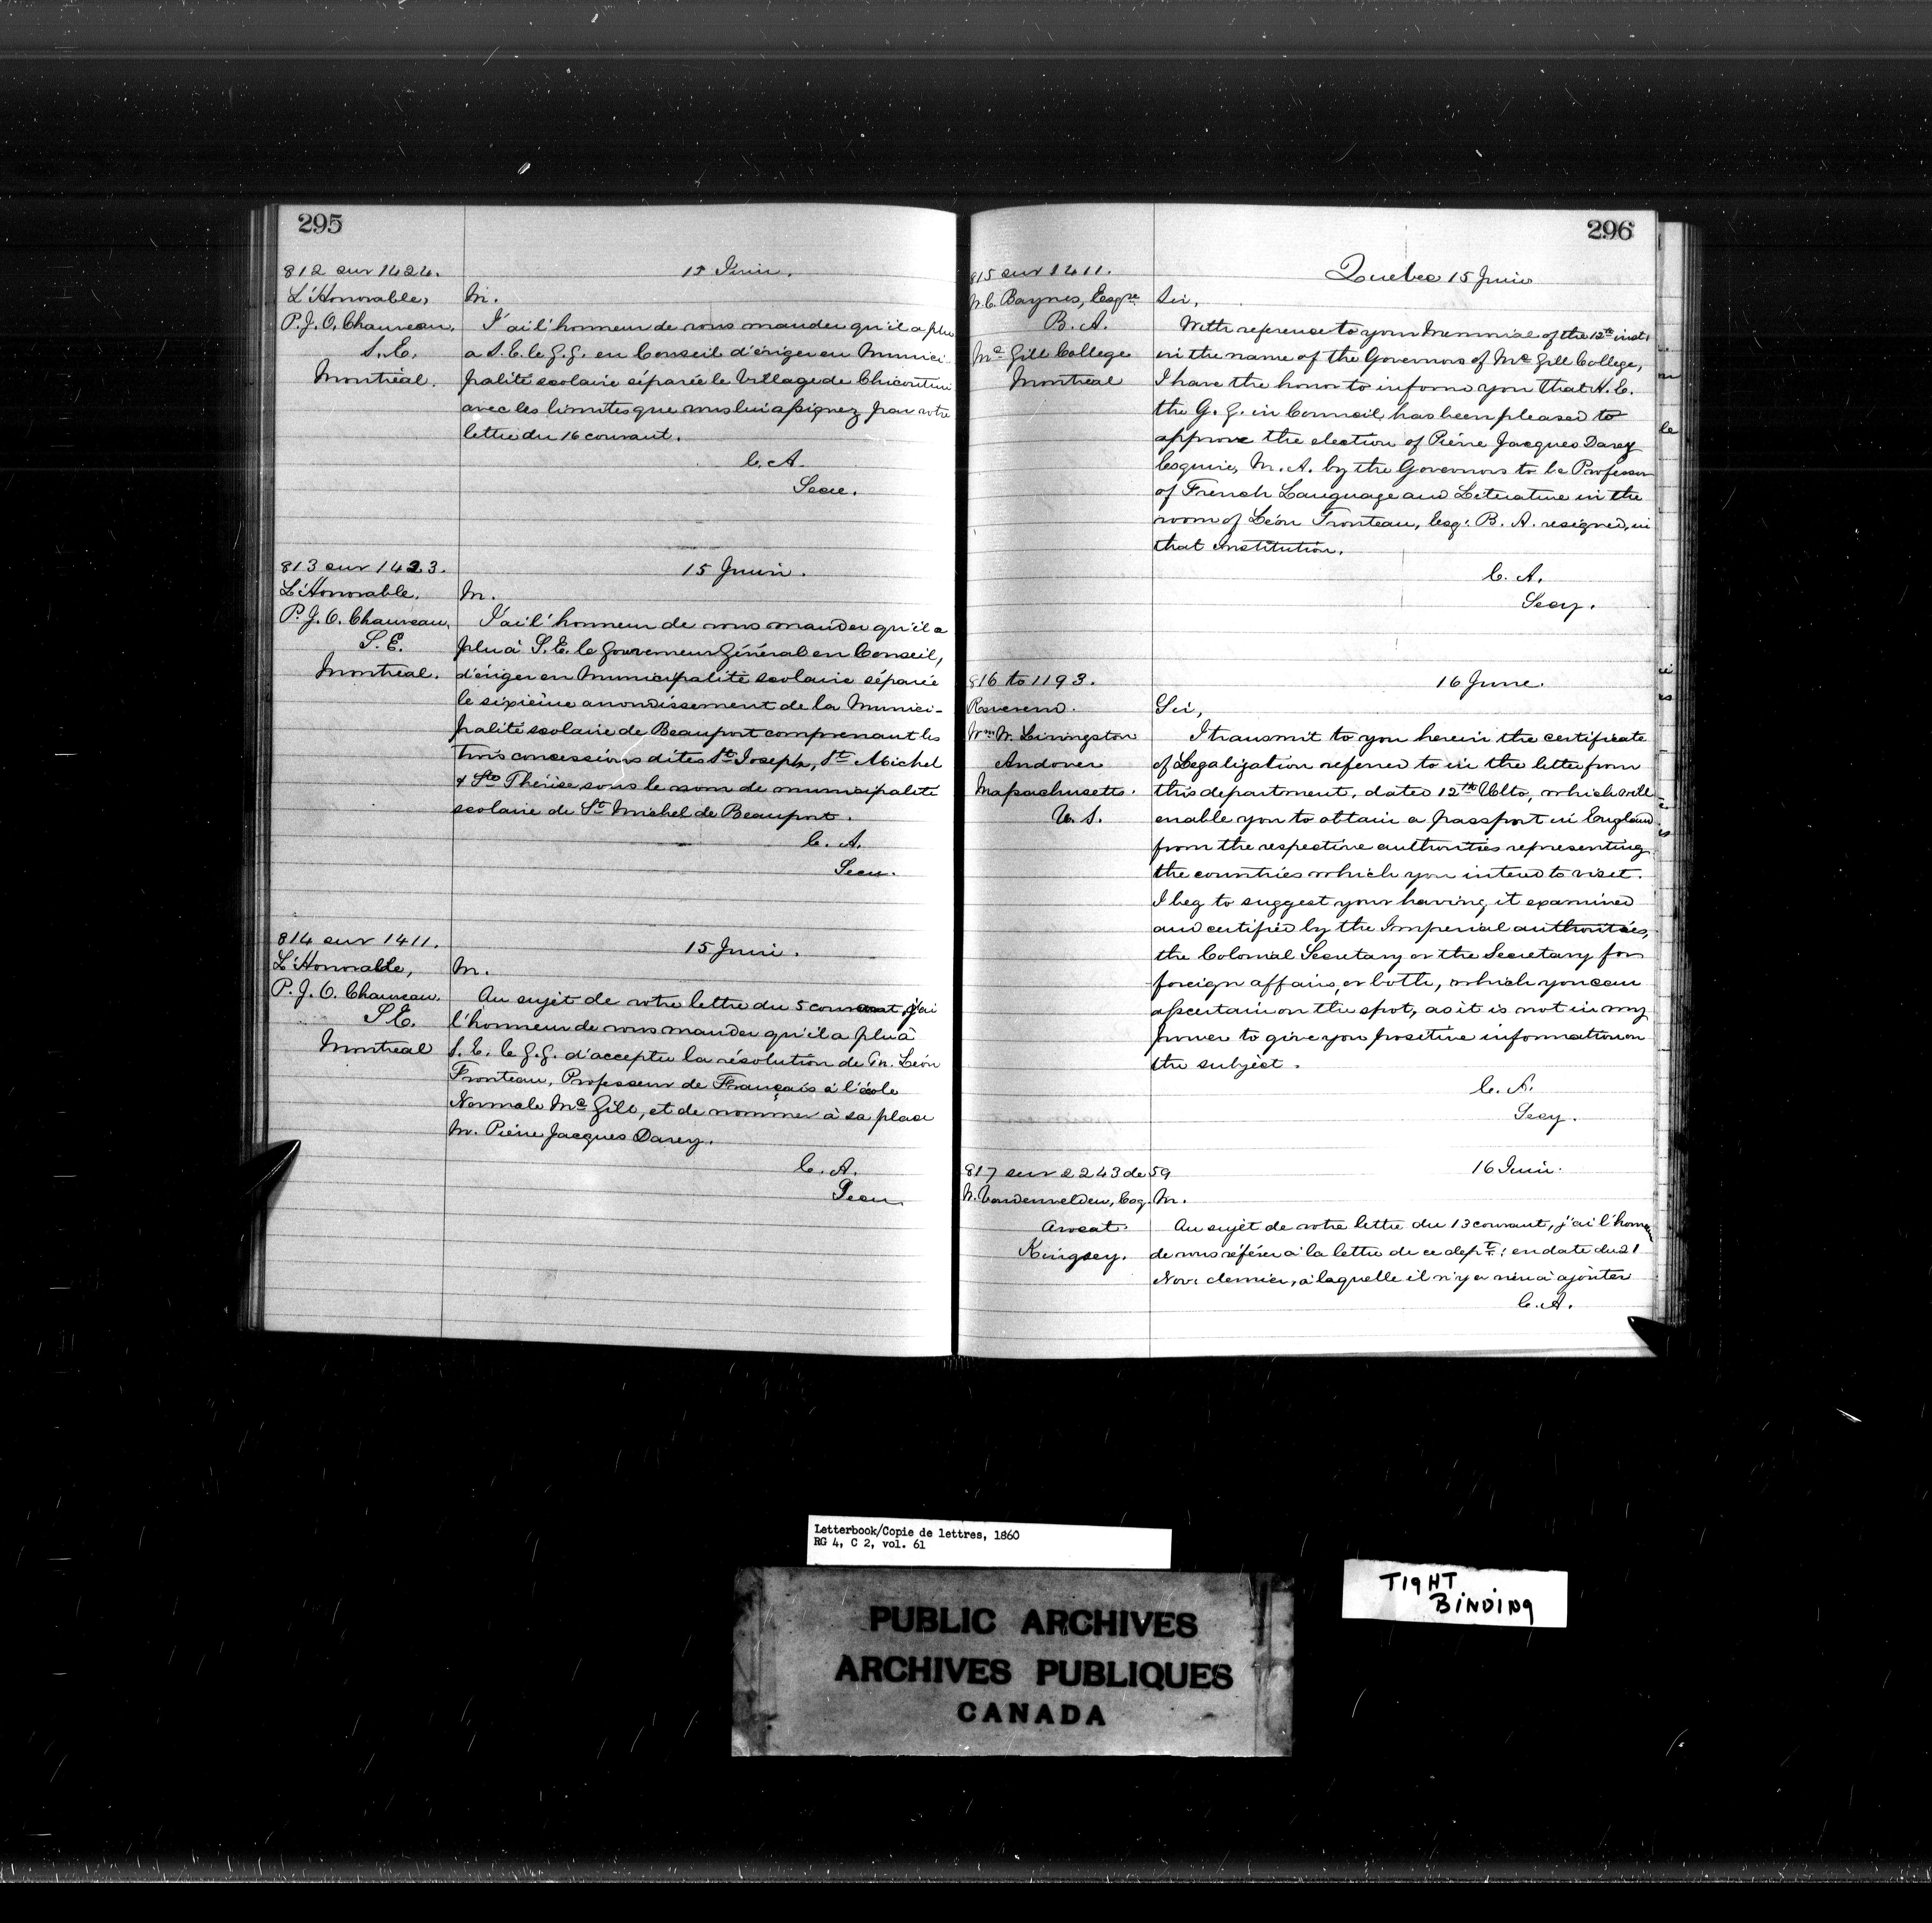 295
812 sur 1424.
L'Honorable,
P. J. O. Chauveau,
S. E.
Montréal.
15 Juin.
M.
J'ai l'honneur de vous mander qu'il a plu
a S. E. le G. G. en Conseil d'ériger en Munici
palité scolaire séparée le Village de Chicoutimi
avec les limites que vous lui assignez par votre
lettre du 16 courant.
C. A.
Secre.
813 sur 1423.
L'Honorable,
P. J. O. Chauveau,
S. E.
Montreal.
15 Juin.
M.
J'ai l'honneur de vous mander qu'il a
plu à S. E. le Gouverneur Général en Conseil,
d'ériger en Municipalité scolaire séparée
le sixième arrondissement de la Munici-
palité scolaire de Beauport comprenant les
trois concessions dites St. Joseph, St. Michel
& Ste Thérèse sous le nom de municipalité
scolaire de St. Michel de Beauport.
C. A.
Secre.
814 sur 1411.
L'Honorable,
P. J. O. Chauveau.
S. E.
Montreal
15 Juin.
M.
Au sujet de votre lettre du 5 courant, j'ai
l'honneur de vous mander qu'il a plu à
S. E. le G. G. d'accepter la résolution de M. Léon
Fronteau, Professeur de Français à l'école
Normale Mc Gill, et de nommer à sa place
M. Pierre Jacques Darey.
C. A.
Secre.
296
815 sur 1411.
W. C. Baynes, Esqre
B. A.
Mc Gill College
Montreal
Quebec 15 Juin
Sir,
With reference to your Memorial of the 12th inst:
in the name of the Governors of Mc Gill College,
I have the honor to inform you that H. E.
the G. G. in Council has been pleased to
approve the election of Pierre Jacques Darey
Esquire, M. A. by the Governors to be Professor
of French Language and Literature in the
room of Léon Fronteau, Esq: B. A. resigned, in
that institution.
C. A.
Secy.
816 to 1193.
Reverend.
Wm W. Livingston
Andover
Massachusetts.
U. S.
16 June.
Sir,
I transmit to you herein the certificate
of Legalization referred to in the letter from
this department, dated 12th Ulto, which will
enable you to obtain a passport in England
from the respective authorities representing
the countries which you intend to visit.
I beg to suggest your having it examined
and certified by the Imperial authorities,
the Colonial Secretary or the Secretary for
foreign affairs, or both, which you can
ascertain on the spot, as it is not in my
power to give you positive information on
the subject.
C. A.
Secy.
817 sur 2243 de 59
W. Vondenvelden, Esq.
Avocat.
Kingsey.
16 Juin.
M.
Au sujet de votre lettre du 13 courant, j'ai l'honneur
de vous référer à la lettre de ce dept: en date du 21
Nov: dernier, à laquelle il n'y a rien à ajouter
C. A.
Letterbook/Copie de lettres, 1860
RG 4, C 2, vol. 61
PUBLIC ARCHIVES
ARCHIVES PUBLIQUES
CANADA
TIGHT
BINDING